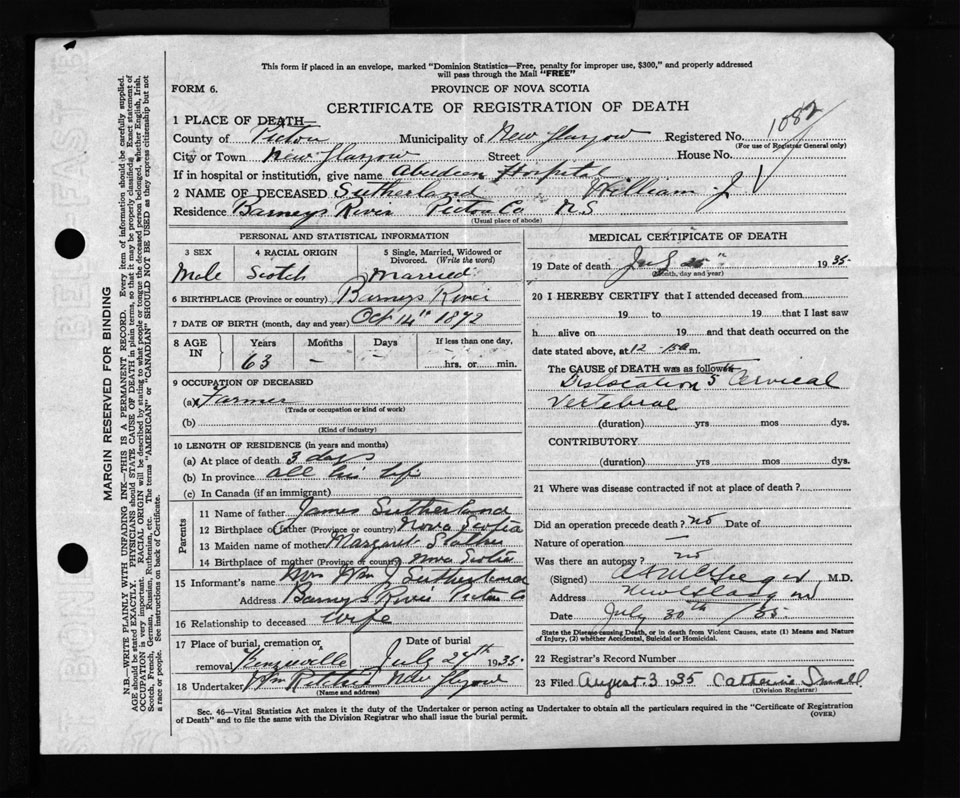 This form if placed in an envelope, marked "Dominion Statistics—Free, penalty for improper use, $300," and properly addressed
will pass through the Mail "FREE"
FORM 6.
PROVINCE OF NOVA SCOTIA
CERTIFICATE OF REGISTRATION OF DEATH
1 PLACE OF DEATH—
County of Pictou Municipality of New Glasgow Registered No. 1082
(For use of Registrar General only)
City or Town New Glasgow Street House No.
If in hospital or institution, give name Aberdeen Hospital
2 NAME OF DECEASED Sutherland William J
Residence Barneys River Pictou Co N.S.
(Usual place of abode)
MARGIN RESERVED FOR BINDING
N.B.—WRITE PLAINLY WITH UNFADING INK—THIS IS A PERMANENT RECORD. Every item of information should be carefully supplied.
AGE should be stated EXACTLY. PHYSICIANS should STATE CAUSE OF DEATH in plain terms, so that it may be properly classified. Exact statement of
OCCUPATION is very important. RACIAL ORIGIN will be described by stating to what people or tongue the deceased person belonged, whether English, Irish,
Scotch, French, German, Russian, Ruthenian, etc. The terms "AMERICAN" or "CANADIAN" SHOULD NOT BE USED as they express citizenship but not
a race or people. See instructions on back of Certificate.
PERSONAL AND STATISTICAL INFORMATION
3 SEX 4 RACIAL ORIGIN 5 Single, Married, Widowed or
Divorced. (Write the word)
Male Scotch Married
6 BIRTHPLACE (Province or country) Barneys River
7 DATE OF BIRTH (month, day and year) Oct 14th 1872
8 AGE IN Years Months Days If less than one day,
63 – – hrs. or min.
9 OCCUPATION OF DECEASED
(a) Farmer
(Trade or occupation or kind of work)
(b)
(Kind of industry)
10 LENGTH OF RESIDENCE (in years and months)
(a) At place of death 3 days
(b) In province all his life
(c) In Canada (if an immigrant)
Parents
11 Name of father James Sutherland
12 Birthplace of father (Province or country) Nova Scotia
13 Maiden name of mother Margaret
14 Birthplace of mother (Province or country) Nova Scotia
15 Informant's name Mrs Wm J Sutherland
Address Barneys River Pictou Co
16 Relationship to deceased Wife
17 Place of burial, cremation or Date of burial
removal Kenzieville July 27th 1935
18 Undertaker Wm Ritchie New Glasgow
(Name and address)
MEDICAL CERTIFICATE OF DEATH
19 Date of death July 25" 1935
(Month, day and year)
20 I HEREBY CERTIFY that I attended deceased from
19 to 19 that I last saw
h alive on 19 and that death occurred on the
date stated above, at 12 m.
The CAUSE of DEATH was as follows
Dislocation 5 Cervical
Vertebrae
(duration) yrs mos dys.
CONTRIBUTORY
(duration) yrs mos dys.
21 Where was disease contracted if not at place of death?
Did an operation precede death? no Date of
Nature of operation –
Was there an autopsy? no
(Signed) M.D.
Address New Glasgow
Date July 30th / 35
State the Disease causing Death, or in death from Violent Causes, state (1) Means and Nature
of Injury, (2) whether Accidental, Suicidal or Homicidal.
22 Registrar's Record Number
23 Filed August 3 1935 Catherine Small
(Division Registrar)
Sec. 46—Vital Statistics Act makes it the duty of the Undertaker or person acting as Undertaker to obtain all the particulars required in the "Certificate of Registration
of Death" and to file the same with the Division Registrar who shall issue the burial permit.
(OVER)